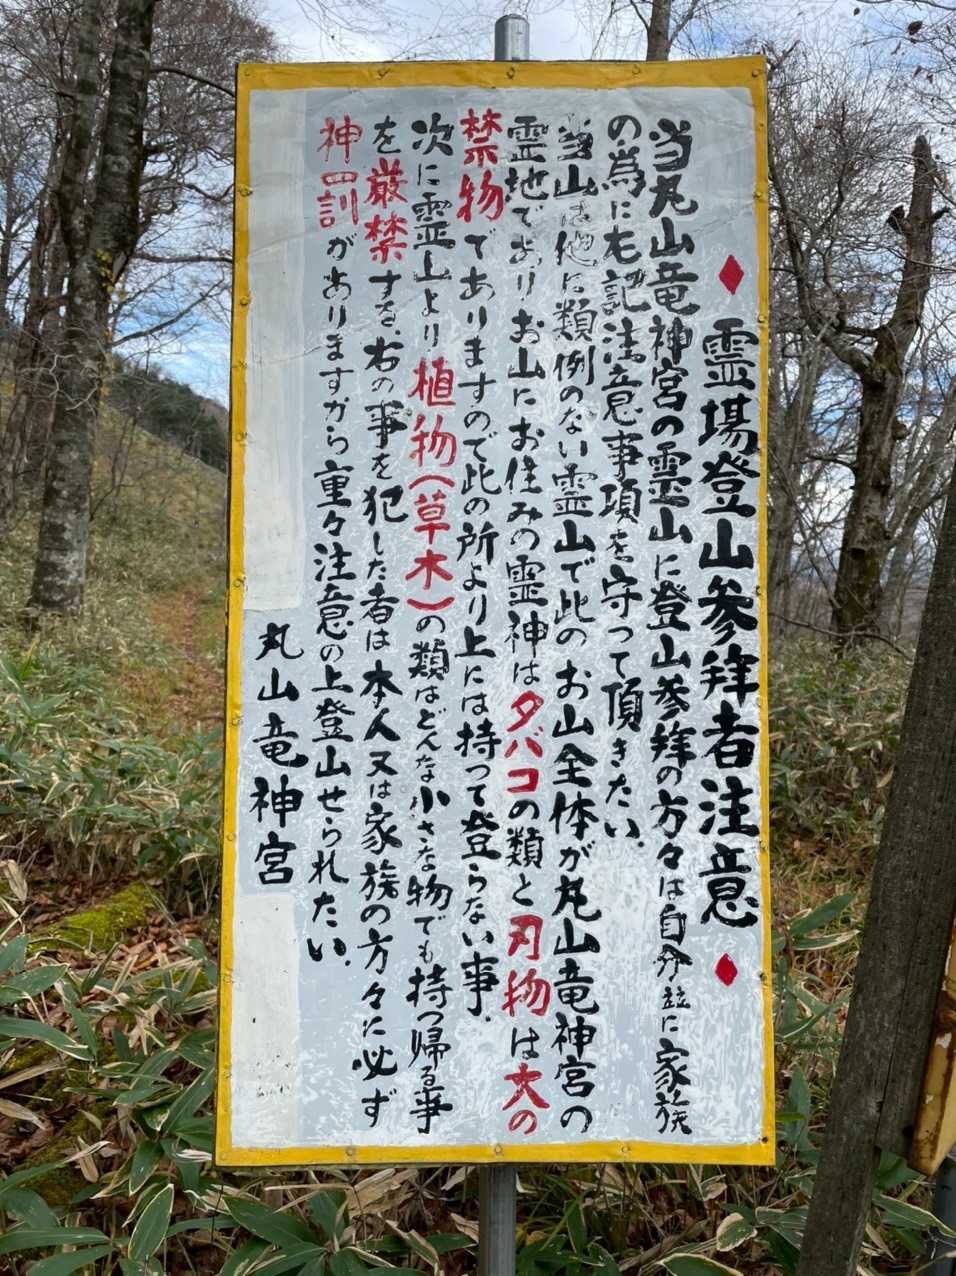 ♦霊場登山参拝者注意♦
当丸山竜神宮の霊山に登山参拝の方々は自分並に家族
の為に左記注意事項を守って頂きたい、
当山は他に類例のない霊山で此のお山全体が丸山竜神宮の
霊地でありお山にお住みの霊神はタバコの類と刃物は大の
禁物でありますので此の所より上には持って登らない事、
次に霊山より植物(草木)の類はどんな小さな物でも持つ帰る事
を厳禁する、右の事を犯した者は本人又は家族の方々に必ず
神罰がありますから重々注意の上登山せられたい、
丸山竜神宮